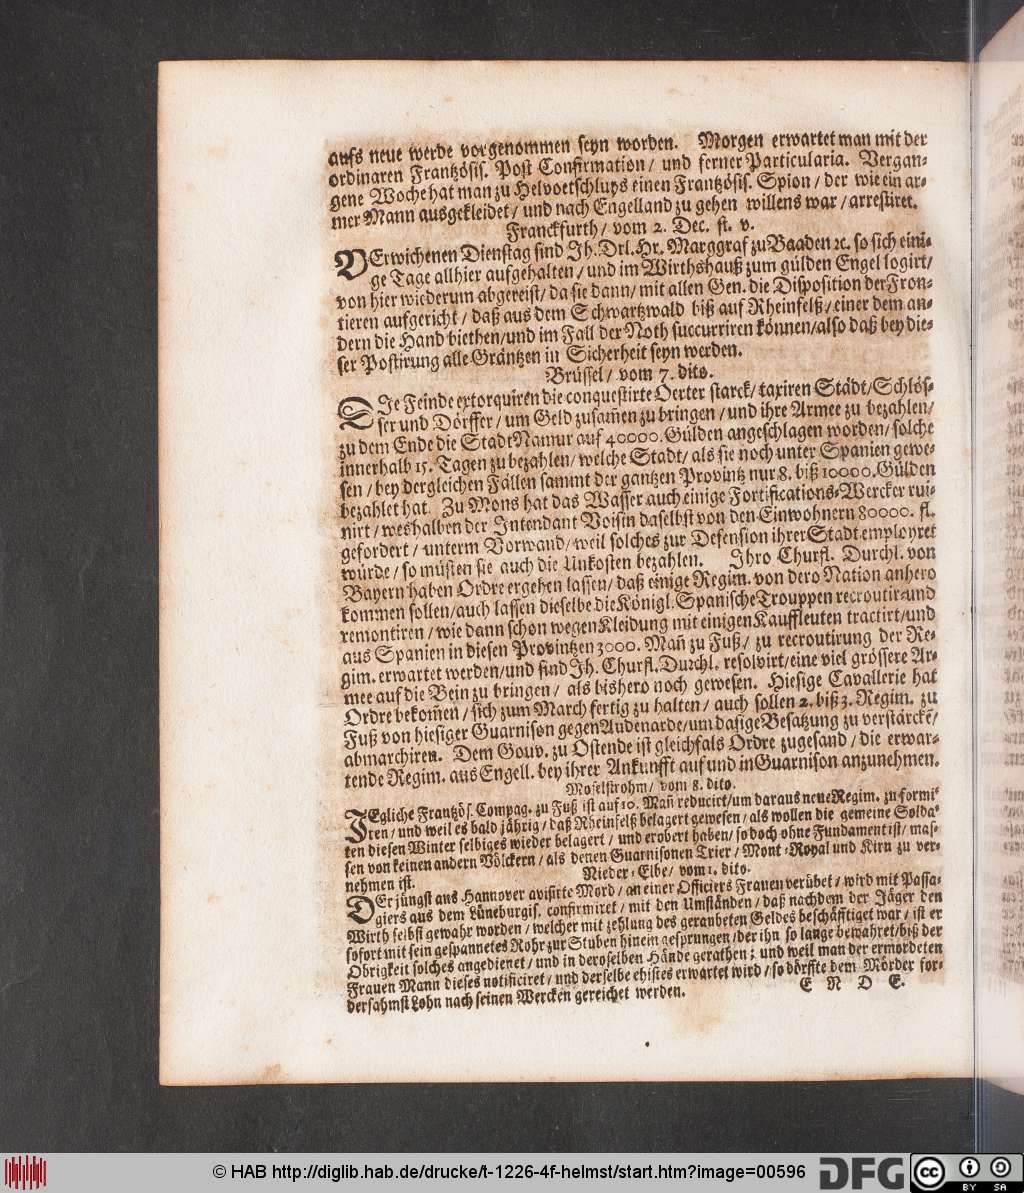 aufs neue werde vorgenommen seyn worden. Morgen erwartet man mit der
ordinaren Frantzösis. Post Confirmation / und ferner Particularia. Vergan-
gene Woche hat man zu Helvoetschluys einen Frantzösis. Spion / der wie ein ar-
mer Mann ausgekleidet / und nach Engelland zu gehen willens war / arrestiret.
Franckfurth / vom 2. Dec. st. v.
VErwichenen Dienstag sind Ih. Drl. Hr. Marggraf zu Baaden ꝛc. so sich eini-
ge Tage allhier aufgehalten / und im Wirthshauß zum gülden Engel logirt /
von hier wiederum abgereist / da sie dann / mit allen Gen. die Disposition der Fron-
tieren aufgericht / daß aus dem Schwartzwald biß auf Rheinfelß / einer dem an-
dern die Hand biethen / und im Fall der Noth succurriren können / also daß bey die-
ser Postirung alle Gräntzen in Sicherheit seyn werden.
Brüssel / vom 7. dito.
DIe Feinde extorquiren die conquestirte Oerter starck / taxiren Städt / Schlös-
ser und Dörffer / um Geld zusam̃en zu bringen / und ihre Armee zu bezahlen /
zu dem Ende die Stadt Namur auf 40000. Gülden angeschlagen worden / solche
innerhalb 15. Tagen zu bezahlen / welche Stadt / als sie noch unter Spanien gewe-
sen / bey dergleichen Fällen sammt der gantzen Provintz nur 8. biß 10000. Gülden
bezahlet hat. Zu Mons hat das Wasser auch einige Fortifications-Wercker rui-
nirt / weßhalben der Intendant Voisin daselbst von den Einwohnern 80000. fl.
gefordert / unterm Vorwand / weil solches zur Defension ihrer Stadt employret
würde / so müsten sie auch die Unkosten bezahlen. Ihro Churfl. Durchl. von
Bayern haben Ordre ergehen lassen / daß einige Regim. von dero Nation anhero
kommen sollen / auch lassen dieselbe die Königl. Spanische Trouppen recroutir- und
remontiren / wie dann schon wegen Kleidung mit einigen Kauffleuten tractirt / und
aus Spanien in diesen Provintzen 3000. Mañ zu Fuß / zu recroutirung der Re-
gim. erwartet werden / und sind Ih. Churfl. Durchl. resolvirt / eine viel grössere Ar-
mee auf die Bein zu bringen / als bishero noch gewesen. Hiesige Cavallerie hat
Ordre bekom̃en / sich zum March fertig zu halten / auch sollen 2. biß 3. Regim. zu
Fuß von hiesiger Guarnison gegen Audenarde / um dasige Besatzung zu verstärckẽ /
abmarchiren. Dem Gouv. zu Ostende ist gleichfals Ordre zugesand / die erwar-
tende Regim. aus Engell. bey ihrer Ankunfft auf und in Guarnison anzunehmen.
Moselstrohm / vom 8. dito.
JEgliche Frantzös. Compag. zu Fuß ist auf 10. Mañ reducirt / um daraus neue Regim. zu formi-
ren / und weil es bald jährig / daß Rheinfelß belagert gewesen / als wollen die gemeine Solda-
ten diesen Winter selbiges wieder belagert / und erobert haben / so doch ohne Fundament ist / mas-
sen von keinen andern Völckern / als denen Guarnisonen Trier / Mont-Royal und Kirn zu ver-
nehmen ist.
Nieder-Elbe / vom 1. dito.
DEr jüngst aus Hannover avisirte Mord / an einer Officiers Frauen verübet / wird mit Passa-
giers aus dem Lüneburgis. confirmiret / mit den Umständen / daß nachdem der Jäger den
Wirth selbst gewahr worden / welcher mit zehlung des geraubeten Geldes beschäfftiget war / ist er
sofort mit sein gespannetes Rohr zur Stuben hinein gesprungen / der ihn so lange bewahret / biß der
Obrigkeit solches angedienet / und in deroselben Hände gerathen ; und weil man der ermordeten
Frauen Mann dieses notificiret / und derselbe ehistes erwartet wird / so dörffte dem Mörder for-
dersahmst Lohn nach seinen Wercken gereichet werden. E N D E.
© HAB http://diglib.hab.de/drucke/t-1226-4f-helmst/start.htm?image=00596
DFG
cc BY SA